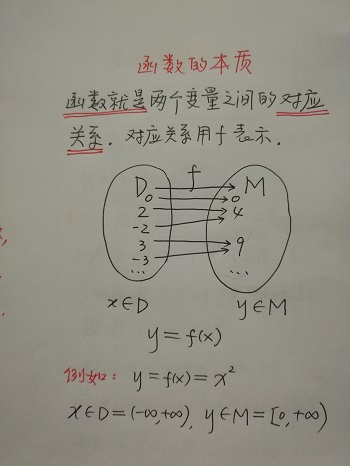 函数的本质
函数就是两个变量之间的对应
关系. 对应关系用f表示.
f
D M
0 0
2 4
-2
3 9
-3
... ...
x∈D y∈M
y=f(x)
例如: y=f(x)=x²
x∈D=(-∞,+∞), y∈M=[0,+∞)